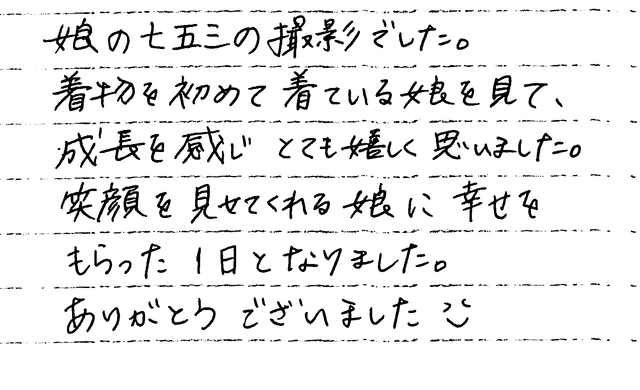 娘の七五三の撮影でした。
着物を初めて着ている娘を見て、
成長を感じ とても嬉しく思いました。
笑顔を見せてくれる娘に幸せを
もらった1日となりました。
ありがとうございました